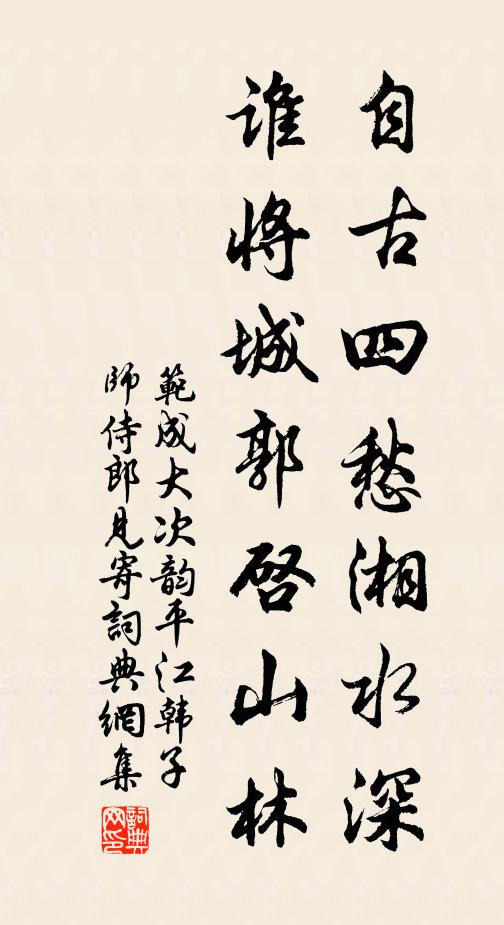 自古四愁湘水深
谁将城郭啓山林
範成大次韵平江韩子
师侍郎見寄詞典網集
詞典
网印